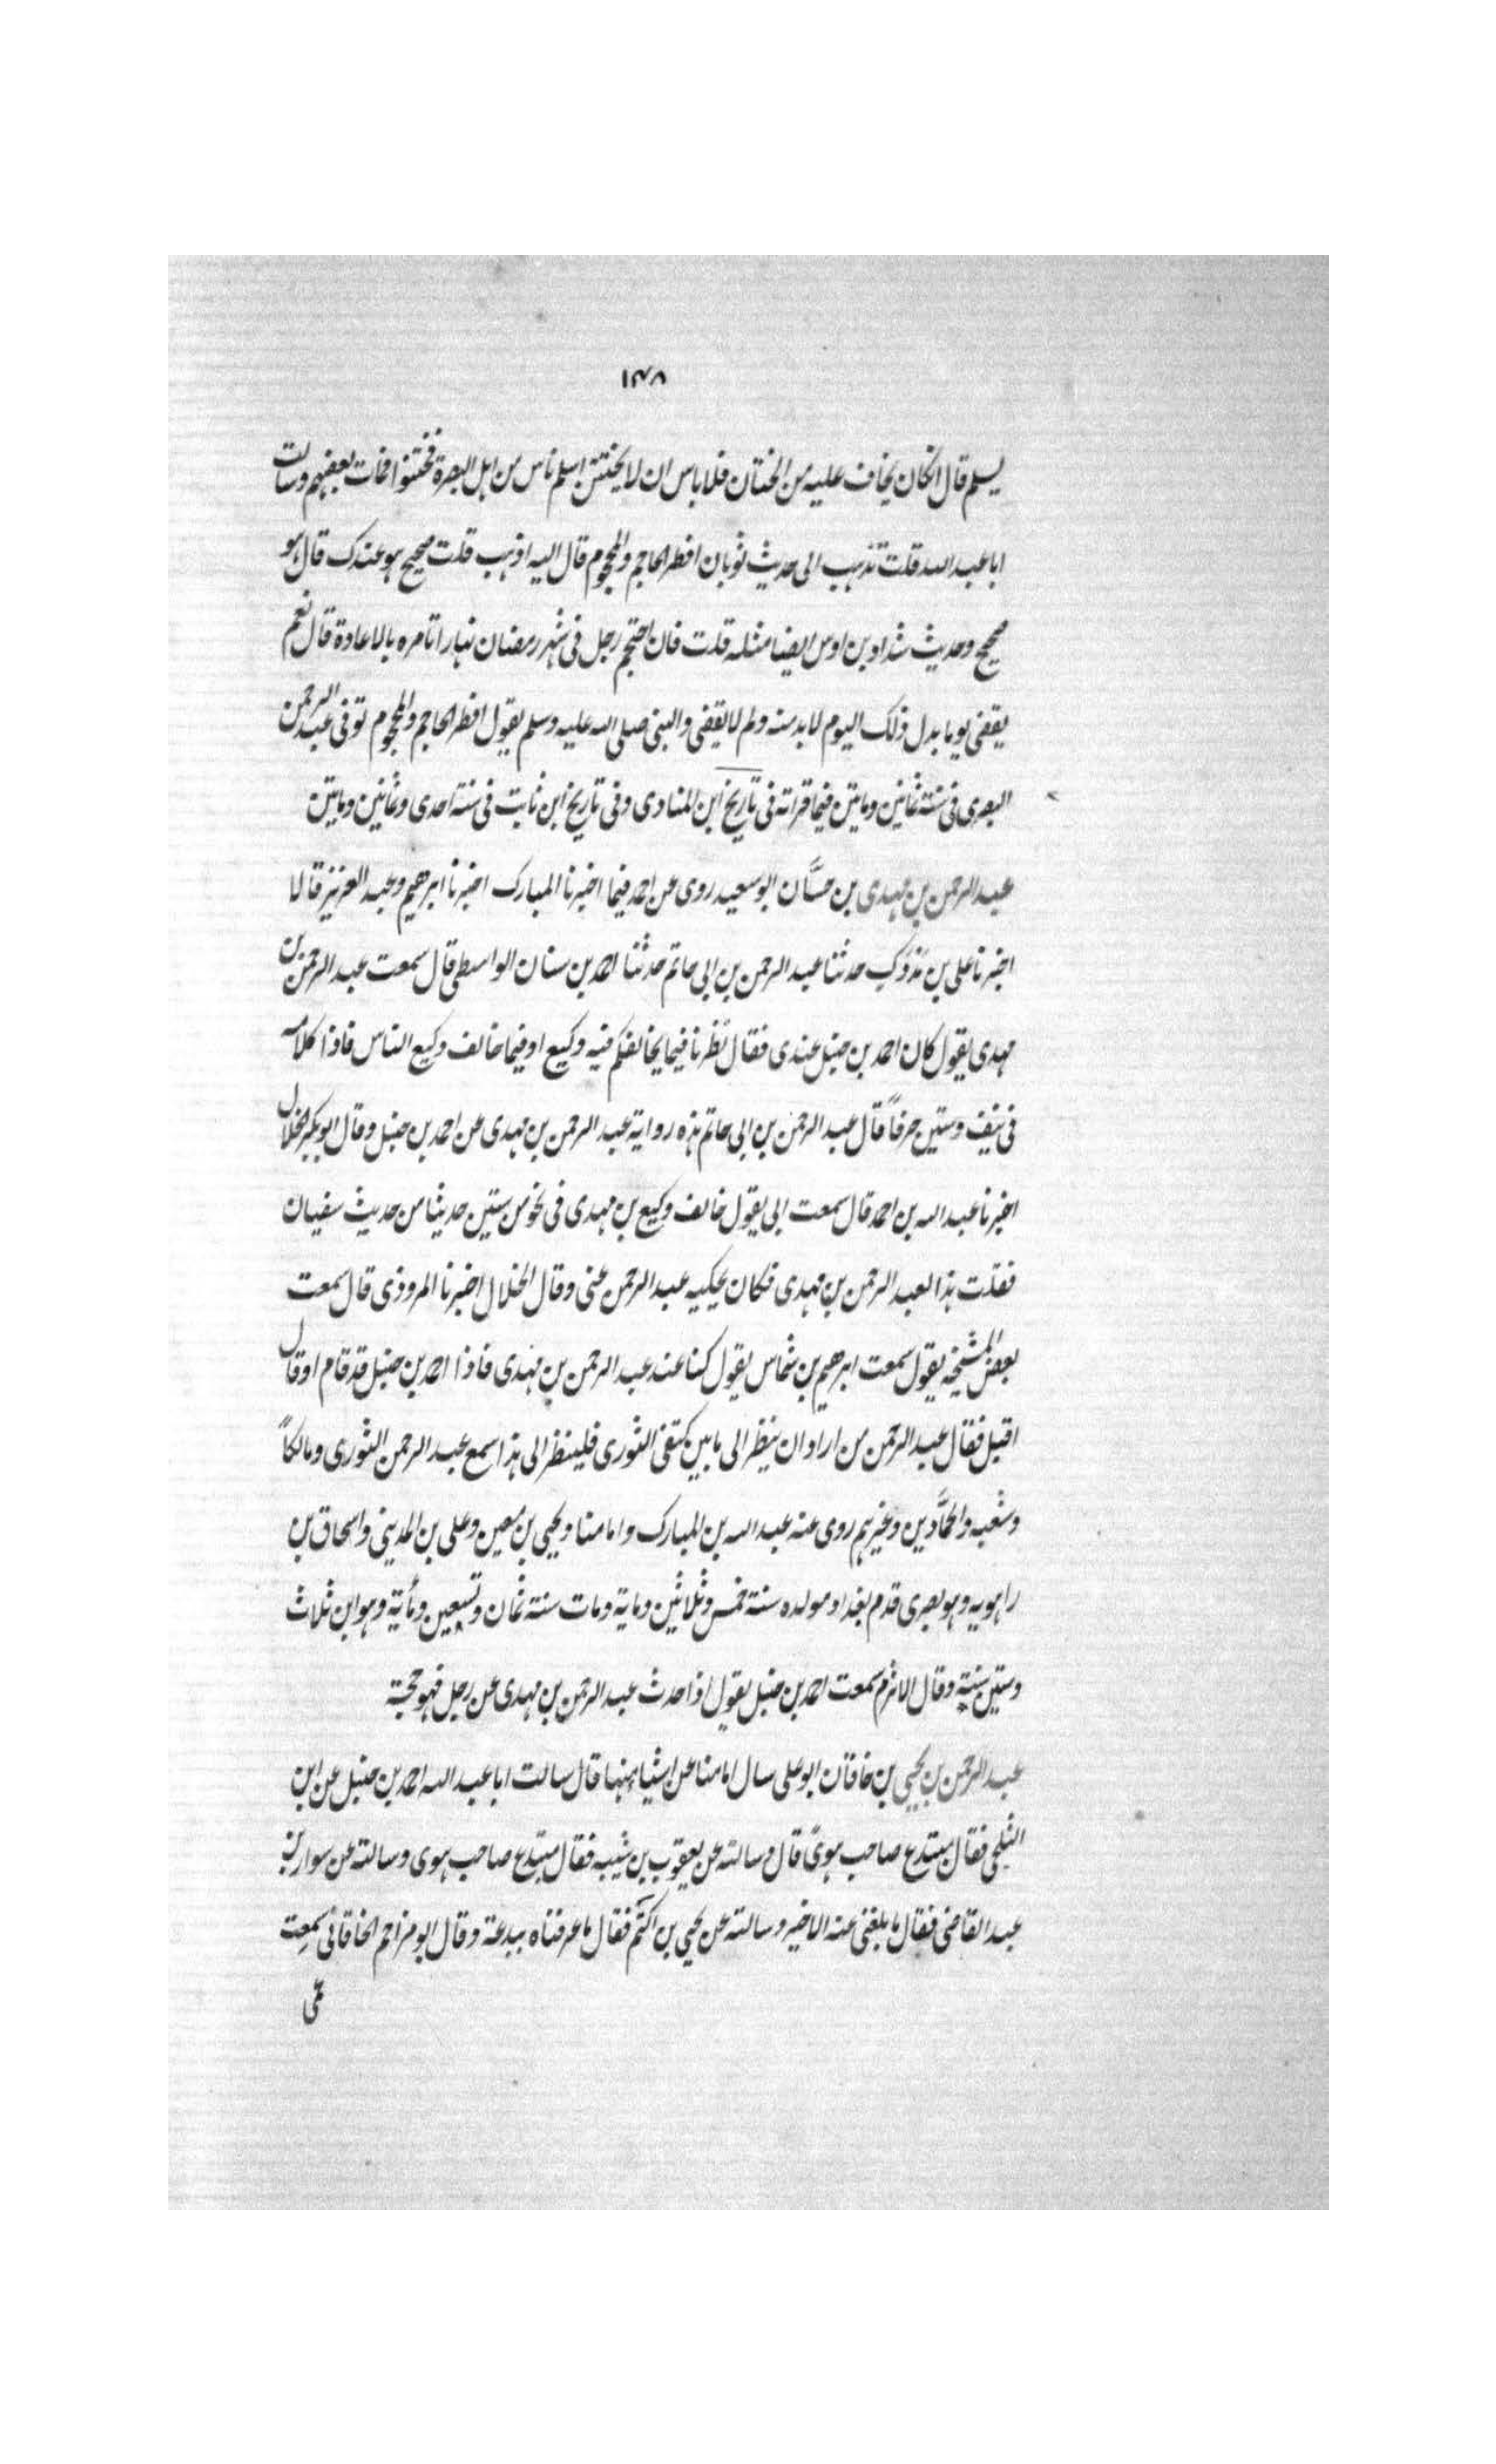 ١٤٨
يسلم قال ان كان يخاف عليه من الختان فلا باس ان لا يختتن اسلم ناس من اهل البصرة فختنوا فمات بعضهم وسالت
ابا عبد الله قلت تذهب الى حديث ثوبان افطر الحاجم والمحجوم قال اليه اذهب قلت صحيح هو عندك قال هو
صحيح وحديث شداد بن اوس ايضا مثله قلت فان احتجم رجل فى شهر رمضان نهارا تامره بالاعادة قال نعم
يقضى يوما بدل ذلك اليوم لا بد منه ولم لا يقضى والنبى صلى الله عليه وسلم يقول افطر الحاجم والمحجوم توفى عبد الرحمن
البصرى فى سنة ثمانين وماتين فيما قراته فى تاريخ ابن المنادى وفى تاريخ ابن ثابت فى سنة احدى وثمانين وماتين
عبد الرحمن بن مهدى بن حسَّان ابو سعيد روى عن احمد فيما اخبرنا المبارك اخبرنا ابرهيم وعبد العزيز قالا
اخبرنا على بن مَرْدَك حدثنا عبد الرحمن بن ابى حاتم حدثنا احمد بن سنان الواسطى قال سمعت عبد الرحمن بن
مهدى يقول كان احمد بن حنبل عندى فقال نَظَرنا فيما يخالفكم فيه وكيع او فيما خالف وكيع الناس فاذا كلامه
فى نيف وستين حرفاً قال عبد الرحمن بن ابى حاتم هذه رواية عبد الرحمن بن مهدى عن احمد بن حنبل وقال ابو بكر الخلال
اخبرنا عبد الله بن احمد قال سمعت ابى يقول خالف وكيع بن مهدى فى نحو من ستين حديثا من حديث سفيان
فقلت هذا لعبد الرحمن بن مهدى فكان يحكيه عبد الرحمن عنى وقال الخلال اخبرنا المروذى قال سمعت
بعض المشيخة يقول سمعت ابرهيم بن شماس يقول كنا عند عبد الرحمن بن مهدى فاذا احمد بن حنبل قد قام او قال
اقبل فقال عبد الرحمن من اراد ان ينظر الى ما بين كتفى الثورى فلينظر الى هذا سمع عبد الرحمن الثورى ومالكاً
وشعبه والحمَّادين وغيرهم روى عنه عبد الله بن المبارك وامامنا ويحيى بن معين وعلى بن المدينى واسحاق بن
راهويه وهو بصرى قدم بغداد مولده سنة خمس وثلاثين وماية ومات سنة ثمان وتسعين ومأية وهو ابن ثلاث
وستين سنة وقال الاثرم سمعت احمد بن حنبل يقول اذا حدث عبد الرحمن بن مهدى عن رجل فهو حجة
عبد الرحمن بن يحيى بن خاقان ابو على سال امامنا عن اشياء منها قال سالت ابا عبد الله احمد بن حنبل عن ابن
الثلجى فقال مبتدع صاحب هوىً قال وسالته عن يعقوب بن شيبه فقال مبتدع صاحب هوى وسالته عن سوار بن
عبد القاضى فقال ما بلغنى عنه الا خير وسالته عن يحيى بن اكثم فقال ما عرفناه ببدعة وقال ابو مزاحم الخاقانى سمعت
عمى